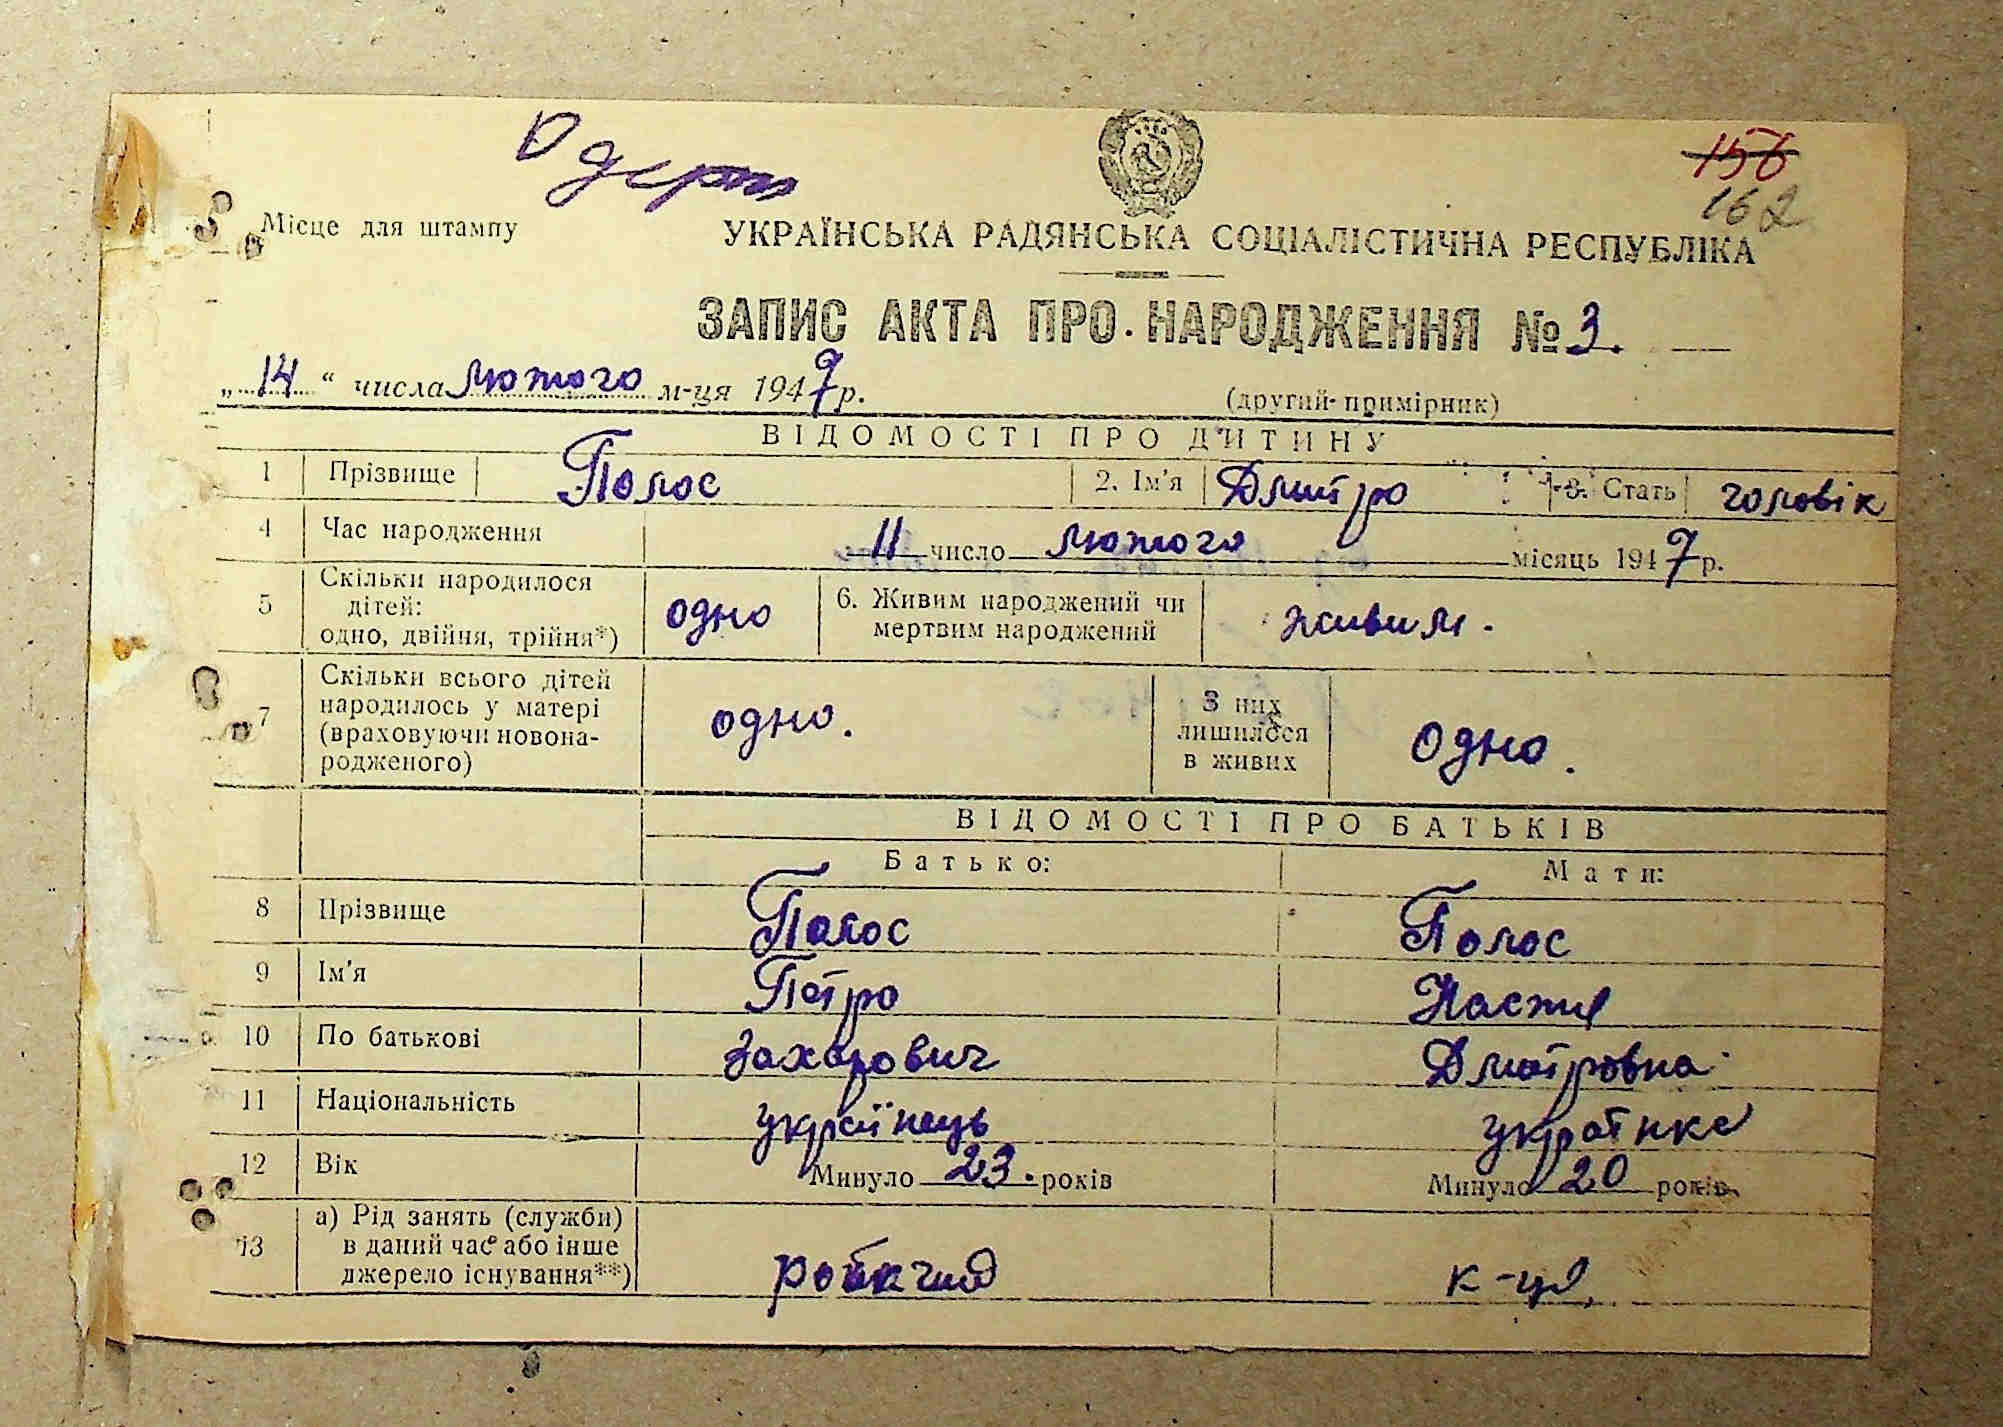 156
162
Місце для штампу
УКРАЇНСЬКА РАДЯНСЬКА СОЦІАЛІСТИЧНА РЕСПУБЛІКА
ЗАПИС АКТА ПРО НАРОДЖЕННЯ № 3.
„ 14 “ числа лютого м-ця 1947 р.
(другий примірник)
ВІДОМОСТІ ПРО ДИТИНУ
1 Прізвище Полос 2. Ім'я Дмитро 3. Стать чоловік
4 Час народження 11 число лютого місяць 1947 р.
5 Скільки народилося дітей: одно, двійня, трійня*) одно 6. Живим народжений чи мертвим народжений живим.
7 Скільки всього дітей народилось у матері (враховуючи новонародженого) одно. З них лишилося в живих одно.
ВІДОМОСТІ ПРО БАТЬКІВ
Батько: Мати:
8 Прізвище Полос Полос
9 Ім'я Петро Настя
10 По батькові Захарович Дмитровна
11 Національність українець українка
12 Вік Минуло 23. років Минуло 20 років
13 а) Рід занять (служби) в даний час або інше джерело існування**) к-ця